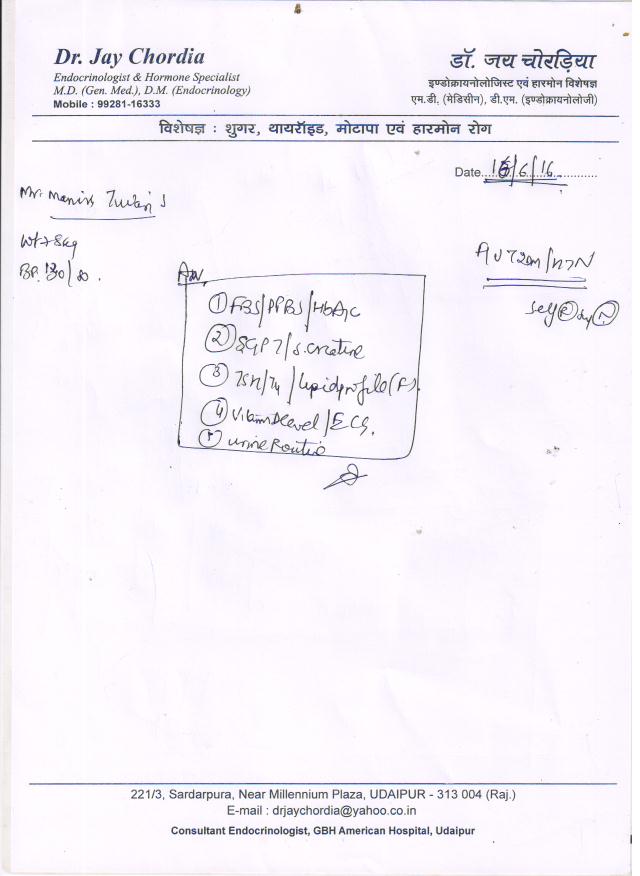 Dr. Jay Chordia
Endocrinologist & Hormone Specialist
M.D. (Gen. Med.), D.M. (Endocrinology)
Mobile : 99281-16333
डॉ. जय चोरड़िया
इण्डोक्रायनोलोजिस्ट एवं हारमोन विशेषज्ञ
एम.डी. (मेडिसीन), डी.एम. (इण्डोक्रायनोलोजी)
विशेषज्ञ : शुगर, थायरॉइड, मोटापा एवं हारमोन रोग
Date 16/6/16
Mr. Manish
BP. 130/80.
① FBS/PPBS/HbA1C
② SGPT/S.creatine
③ TSH/T4/Lipid profile(F).
④ Vitamin D level/ECG.
⑤ urine Routine
221/3, Sardarpura, Near Millennium Plaza, UDAIPUR - 313 004 (Raj.)
E-mail : drjaychordia@yahoo.co.in
Consultant Endocrinologist, GBH American Hospital, Udaipur